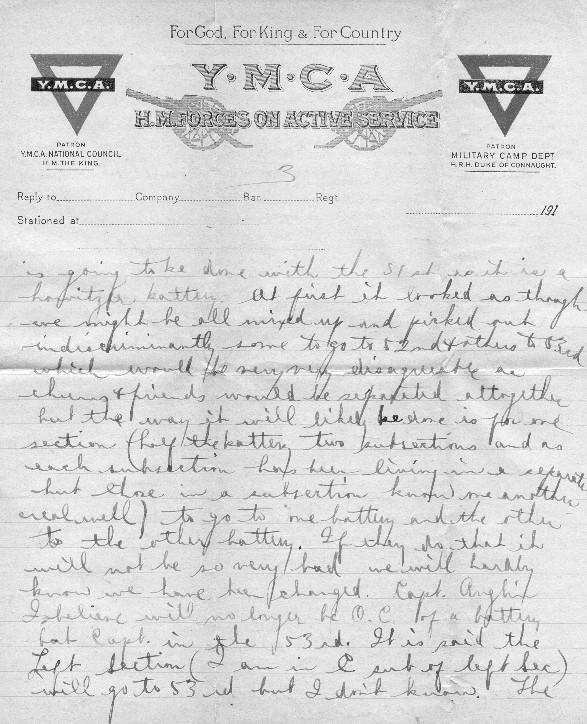 For God, For King & For Country
Y.M.C.A.
Y·M·C·A
Y.M.C.A.
H.M. FORCES ON ACTIVE SERVICE
PATRON
Y.M.C.A. NATIONAL COUNCIL
H.M. THE KING.
PATRON
MILITARY CAMP DEPT
H.R.H. DUKE OF CONNAUGHT.
3
Reply to Company Bat. Regt.
Stationed at 191
is going to be done with the 51st as it is a
howitzer battery. At first it looked as though
we might be all mixed up and picked out
indiscriminantly some to go to 52nd & others to 53rd
which would be very very disagreeable as
chums & friends would be separated altogether
but the way it will likely be done is for one
section (half the battery two subsections and as
each subsection has been living in a separate
hut those in a subsection know one another
real well) to go to one battery and the other
to the other battery. If they do that it
will not be so very bad we will hardly
know we have been changed. Capt.
I believe will no longer be O.C. of a battery
but Capt. in the 53rd. It is said the
Left Section (I am in C sub of left sec)
will go to 53rd but I don't know. The